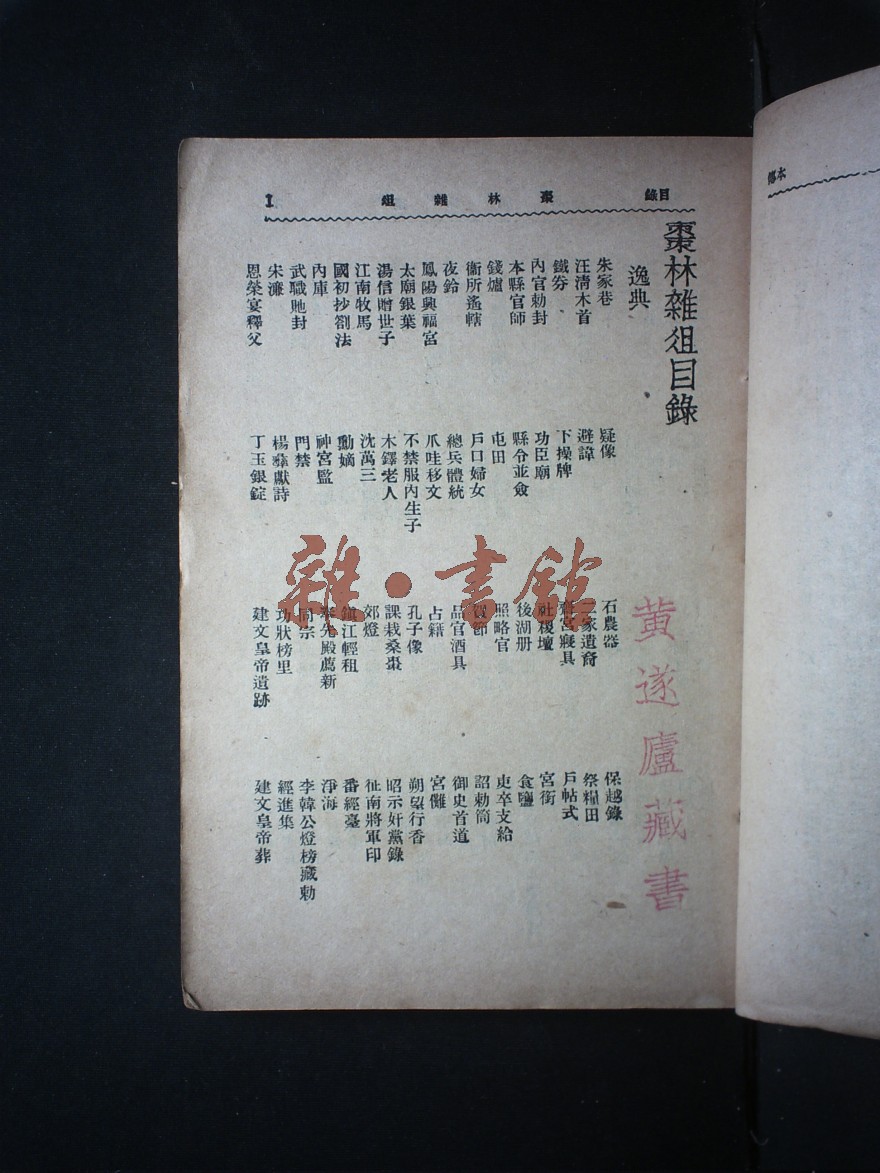 目錄　棗林雜俎　1
棗林雜俎目錄
逸典
朱家巷　疑像　石農器　保越錄
汪清木首　避諱　家遺裔　祭糧田
鐵券　下操牌　齋宮寢具　戶帖式
內官勅封　功臣廟　社稷壇　宮銜
本縣官師　縣令並僉　後湖册　食鹽
錢爐　屯田　照略官　吏卒支給
衞所遙轄　戶口婦女　賀節　詔勅筒
夜鈴　總兵體統　品官酒具　御史首道
鳳陽興福宮　爪哇移文　占籍　宮儺
太廟銀葉　不禁服內生子　孔子像　朔望行香
湯信贈世子　木鐸老人　課栽桑棗　昭示奸黨錄
江南牧馬　沈萬三　郊燈　征南將軍印
國初抄劄法　勳嫡　鎮江輕租　番經臺
內庫　神宮監　奉先殿薦新　淨海
武職貤封　門禁　同宗　李韓公燈榜藏勅
宋濂　楊彝獻詩　功狀榜里　經進集
恩榮宴釋父　丁玉銀錠　建文皇帝遺跡　建文皇帝葬
黄遂廬藏書
雜·書館